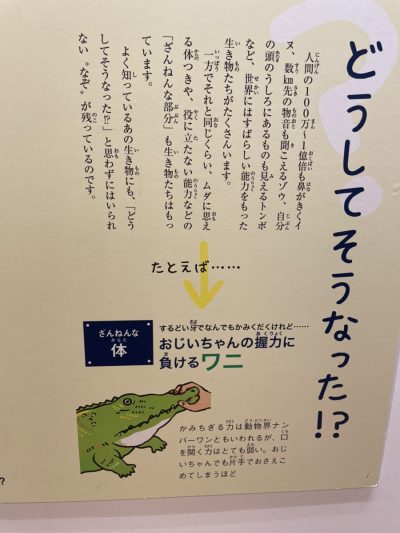 どうしてそうなった!?
人間の100万〜1億倍も鼻がきくイ
ヌ、数km先の物音も聞こえるゾウ、自分
の頭のうしろにあるものも見えるトンボ
など、世界にはすばらしい能力をもった
生き物たちがたくさんいます。
一方でそれと同じくらい、ムダに思え
る体つきや、役に立たない能力などの
「ざんねんな部分」も生き物たちはもっ
ています。
よく知っているあの生き物にも、「どう
してそうなった!?」と思わずにはいられ
ない“なぞ”が残っているのです。
たとえば……
ざんねんな
体
するどい牙でなんでもかみくだくけれど……
おじいちゃんの握力に
負けるワニ
かみちぎる力は動物界ナン
バーワンともいわれるが、口
を開く力はとても弱い。おじ
いちゃんでも片手でおさえこ
めてしまうほど